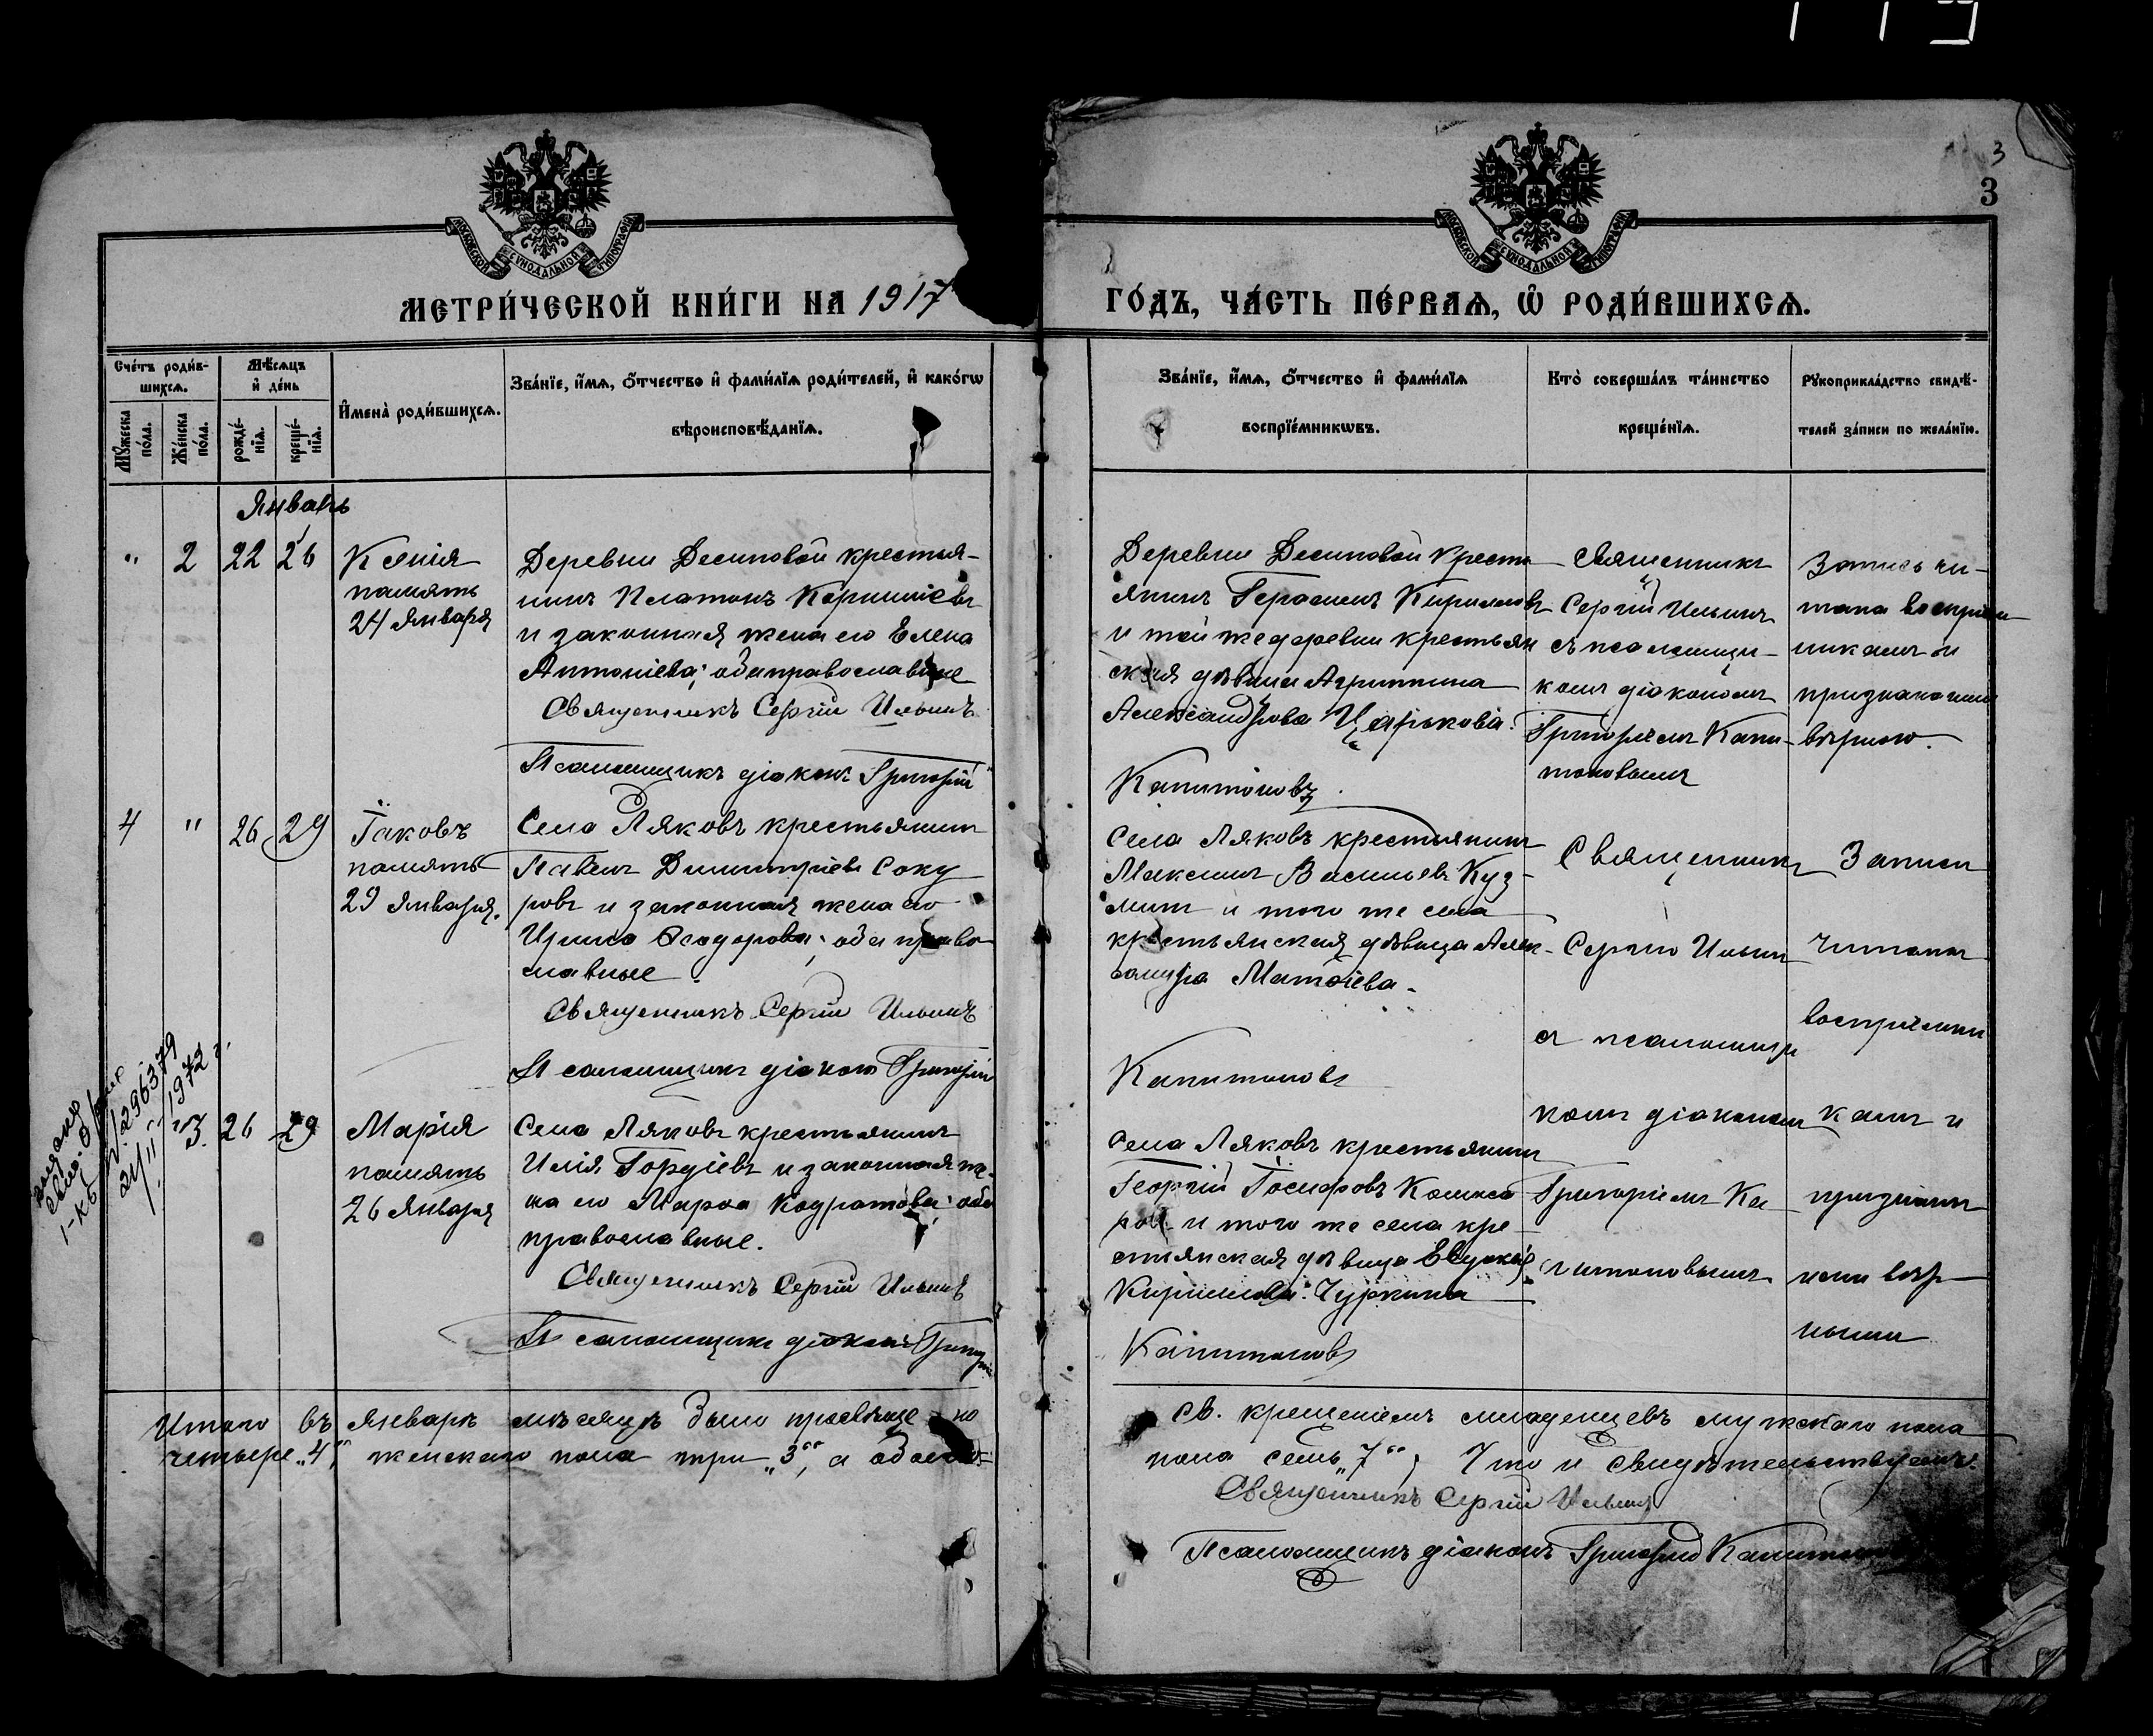 3
3
МОСКОВСКОЙ СѴНОДАЛЬНОЙ ТИПОГРАФІИ
МОСКОВСКОЙ СѴНОДАЛЬНОЙ ТИПОГРАФІИ
МЕТРИ́ЧЕСКОЙ КНИ́ГИ НА 1917
ГО́ДЪ, ЧА́СТЬ ПЕ́РВАѦ, Ѡ҆ РОДИ́ВШИХСѦ.
Сче́тъ роди́в-
шихся.
Мѣ́сяцъ
и҆ де́нь
Мꙋ́жеска
по́ла.
Же́нска
по́ла.
рожде́-
нїѧ.
креще́-
нїѧ.
И҆мена̀ роди́вшихсѧ.
Зва́нїе, и҆́мѧ, ѻ҆́тчество и҆ фами́лїѧ роди́телей, и҆ како́гѡ
вѣроисповѣ́данїѧ.
Зва́нїе, и҆́мѧ, ѻ҆́тчество и҆ фами́лїѧ
воспрїе́мникѡвъ.
Кто̀ соверша́лъ та́инство
креще́нїѧ.
Рꙋкоприкла́дство свидѣ́-
телей за́писи по жела́нїю.
Январь
" 2 22 26
Ксенія
память
24 января
Деревни Десиповой крестья-
нинъ Платонъ Корниліевъ
и законная жена его Елена
Антоніева; оба православные
Священникъ Сергій Ильинъ
Псаломщикъ діаконъ Григорій
Деревни Десиповой кресть
янинъ Герасимъ Кирилловъ
и той же деревни крестьян
ская дѣвица Агриппина
Александрова Царькова.
Капитоновъ.
Священникъ
Сергій Ильинъ
съ псаломщи-
комъ діакономъ
Григоріемъ Капи-
тоновымъ
Запись чи-
тана воспріем
никами и
признана ими
вѣрною.
4 " 26 29
Іаковъ
память
29 января.
Села Ляховъ крестьянинъ
Павелъ Димитріевъ Соку
ровъ и законная жена его
Ирина Ѳеодорова; оба право
славные.
Священникъ Сергій Ильинъ
Псаломщикъ діаконъ Григорій
Села Ляховъ крестьянинъ
Максимъ Васильевъ Куз-
минъ и того же села
крестьянская дѣвица Алек-
сандра Матѳіева.
Капитоновъ
Священникъ
Сергій Ильинъ
съ псаломщи
комъ діакономъ
Григоріемъ Ка
питоновымъ
Записи
читаны
воспріемни
ками и
признаны
ими вѣр
ными
выдано
свид. о рожд
1-КБ № 296379
24/II - 1972 г.
" 3 26 29
Марія
память
26 января
Села Ляховъ крестьянинъ
Илія Гордіевъ и законная же-
на его Марѳа Кодратова; оба
православные.
Священникъ Сергій Ильинъ
Псаломщикъ діаконъ Григорій
Села Ляховъ крестьянинъ
Георгій Іосифовъ
и того же села кре
стьянская дѣвица Евдокія
Кириллова Чуркина
Капитоновъ
Итого въ январѣ мѣсяцѣ было просвѣщено
св. крещеніемъ младенцевъ мужскаго пола
четыре „4“, женскаго пола три „3“, а обоего
пола семь „7“; Что и свидѣтельствуемъ.
Священникъ Сергій Ильинъ
Псаломщикъ діаконъ Григорій Капитоновъ